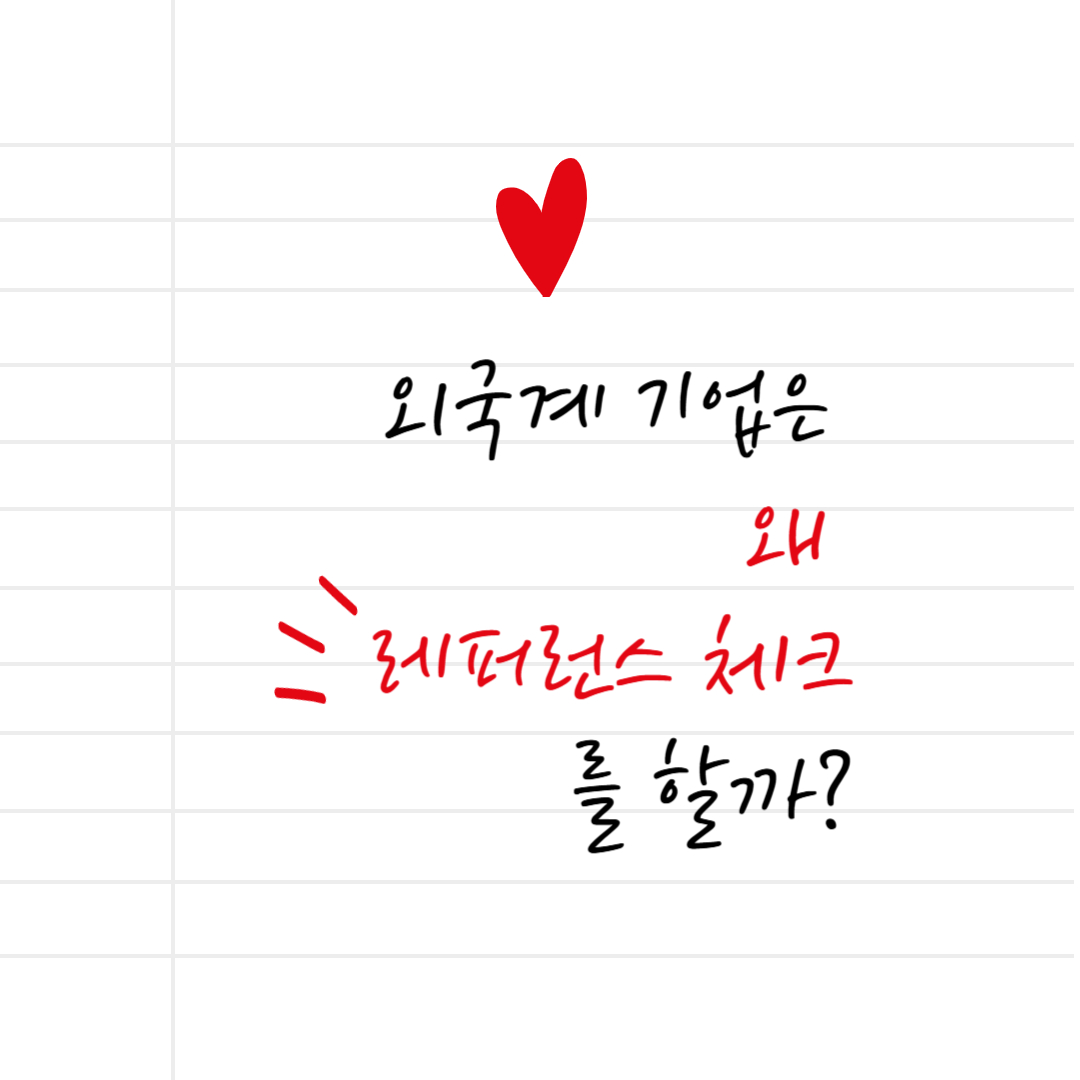 외국계 기업은
왜
레퍼런스 체크
를 할까?